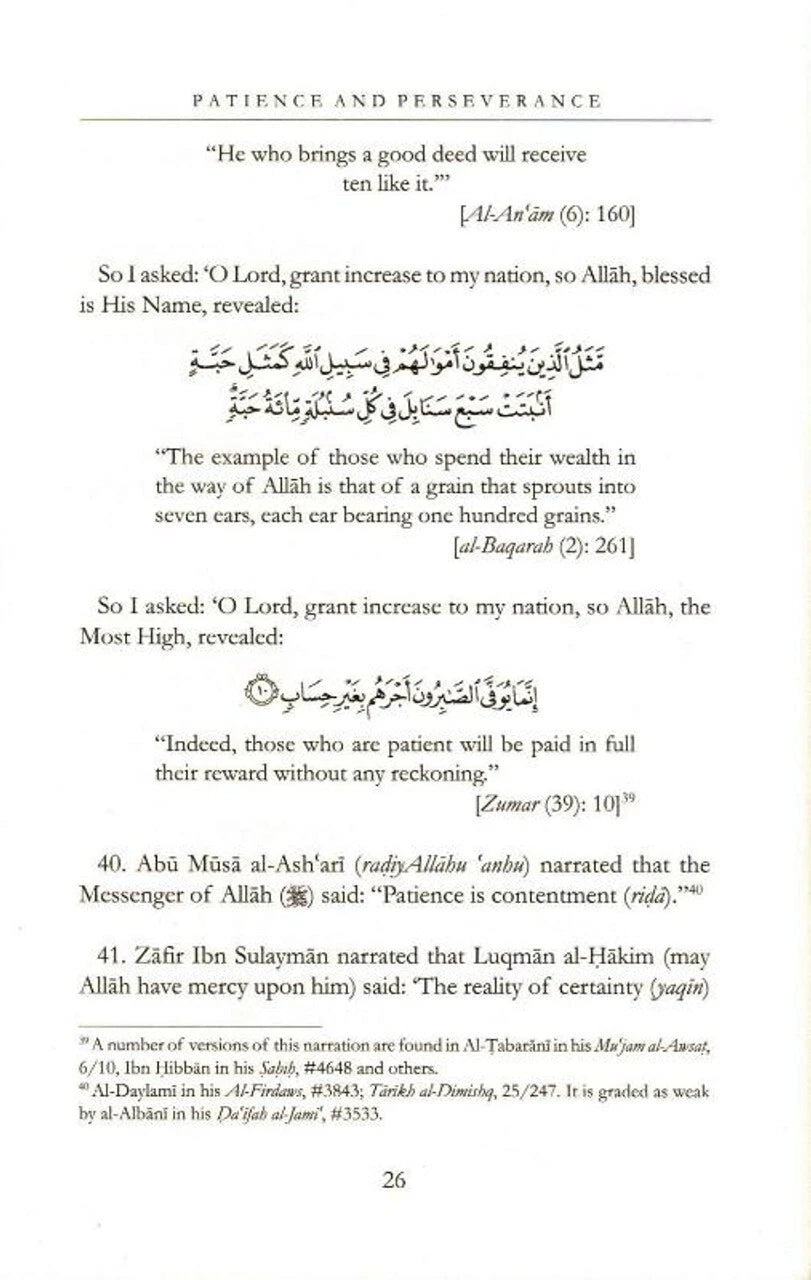 PATIENCE AND PERSEVERANCE
“He who brings a good deed will receive
ten like it.”’
[Al-An‘ām (6): 160]
So I asked: ‘O Lord, grant increase to my nation, so Allāh, blessed
is His Name, revealed:
مَّثَلُ ٱلَّذِينَ يُنفِقُونَ أَمْوَٰلَهُمْ فِى سَبِيلِ ٱللَّهِ كَمَثَلِ حَبَّةٍ
أَنۢبَتَتْ سَبْعَ سَنَابِلَ فِى كُلِّ سُنۢبُلَةٍ مِّا۟ئَةُ حَبَّةٍ ۗ
“The example of those who spend their wealth in
the way of Allāh is that of a grain that sprouts into
seven ears, each ear bearing one hundred grains.”
[al-Baqarah (2): 261]
So I asked: ‘O Lord, grant increase to my nation, so Allāh, the
Most High, revealed:
إِنَّمَا يُوَفَّى ٱلصَّـٰبِرُونَ أَجْرَهُم بِغَيْرِ حِسَابٍ ١٠
“Indeed, those who are patient will be paid in full
their reward without any reckoning.”
[Zumar (39): 10]³⁹
40. Abū Mūsā al-Ash‘arī (raḍiyAllāhu ‘anhu) narrated that the
Messenger of Allāh (ﷺ) said: “Patience is contentment (riḍā).”⁴⁰
41. Zāfir Ibn Sulaymān narrated that Luqmān al-Ḥākim (may
Allāh have mercy upon him) said: ‘The reality of certainty (yaqīn)
³⁹ A number of versions of this narration are found in Al-Ṭabarānī in his Mu‘jam al-Awsaṭ,
6/10, Ibn Ḥibbān in his Ṣaḥīḥ, #4648 and others.
⁴⁰ Al-Daylamī in his Al-Firdaws, #3843; Tārīkh al-Dimishq, 25/247. It is graded as weak
by al-Albānī in his Ḍa‘īfah al-Jami‘, #3533.
26